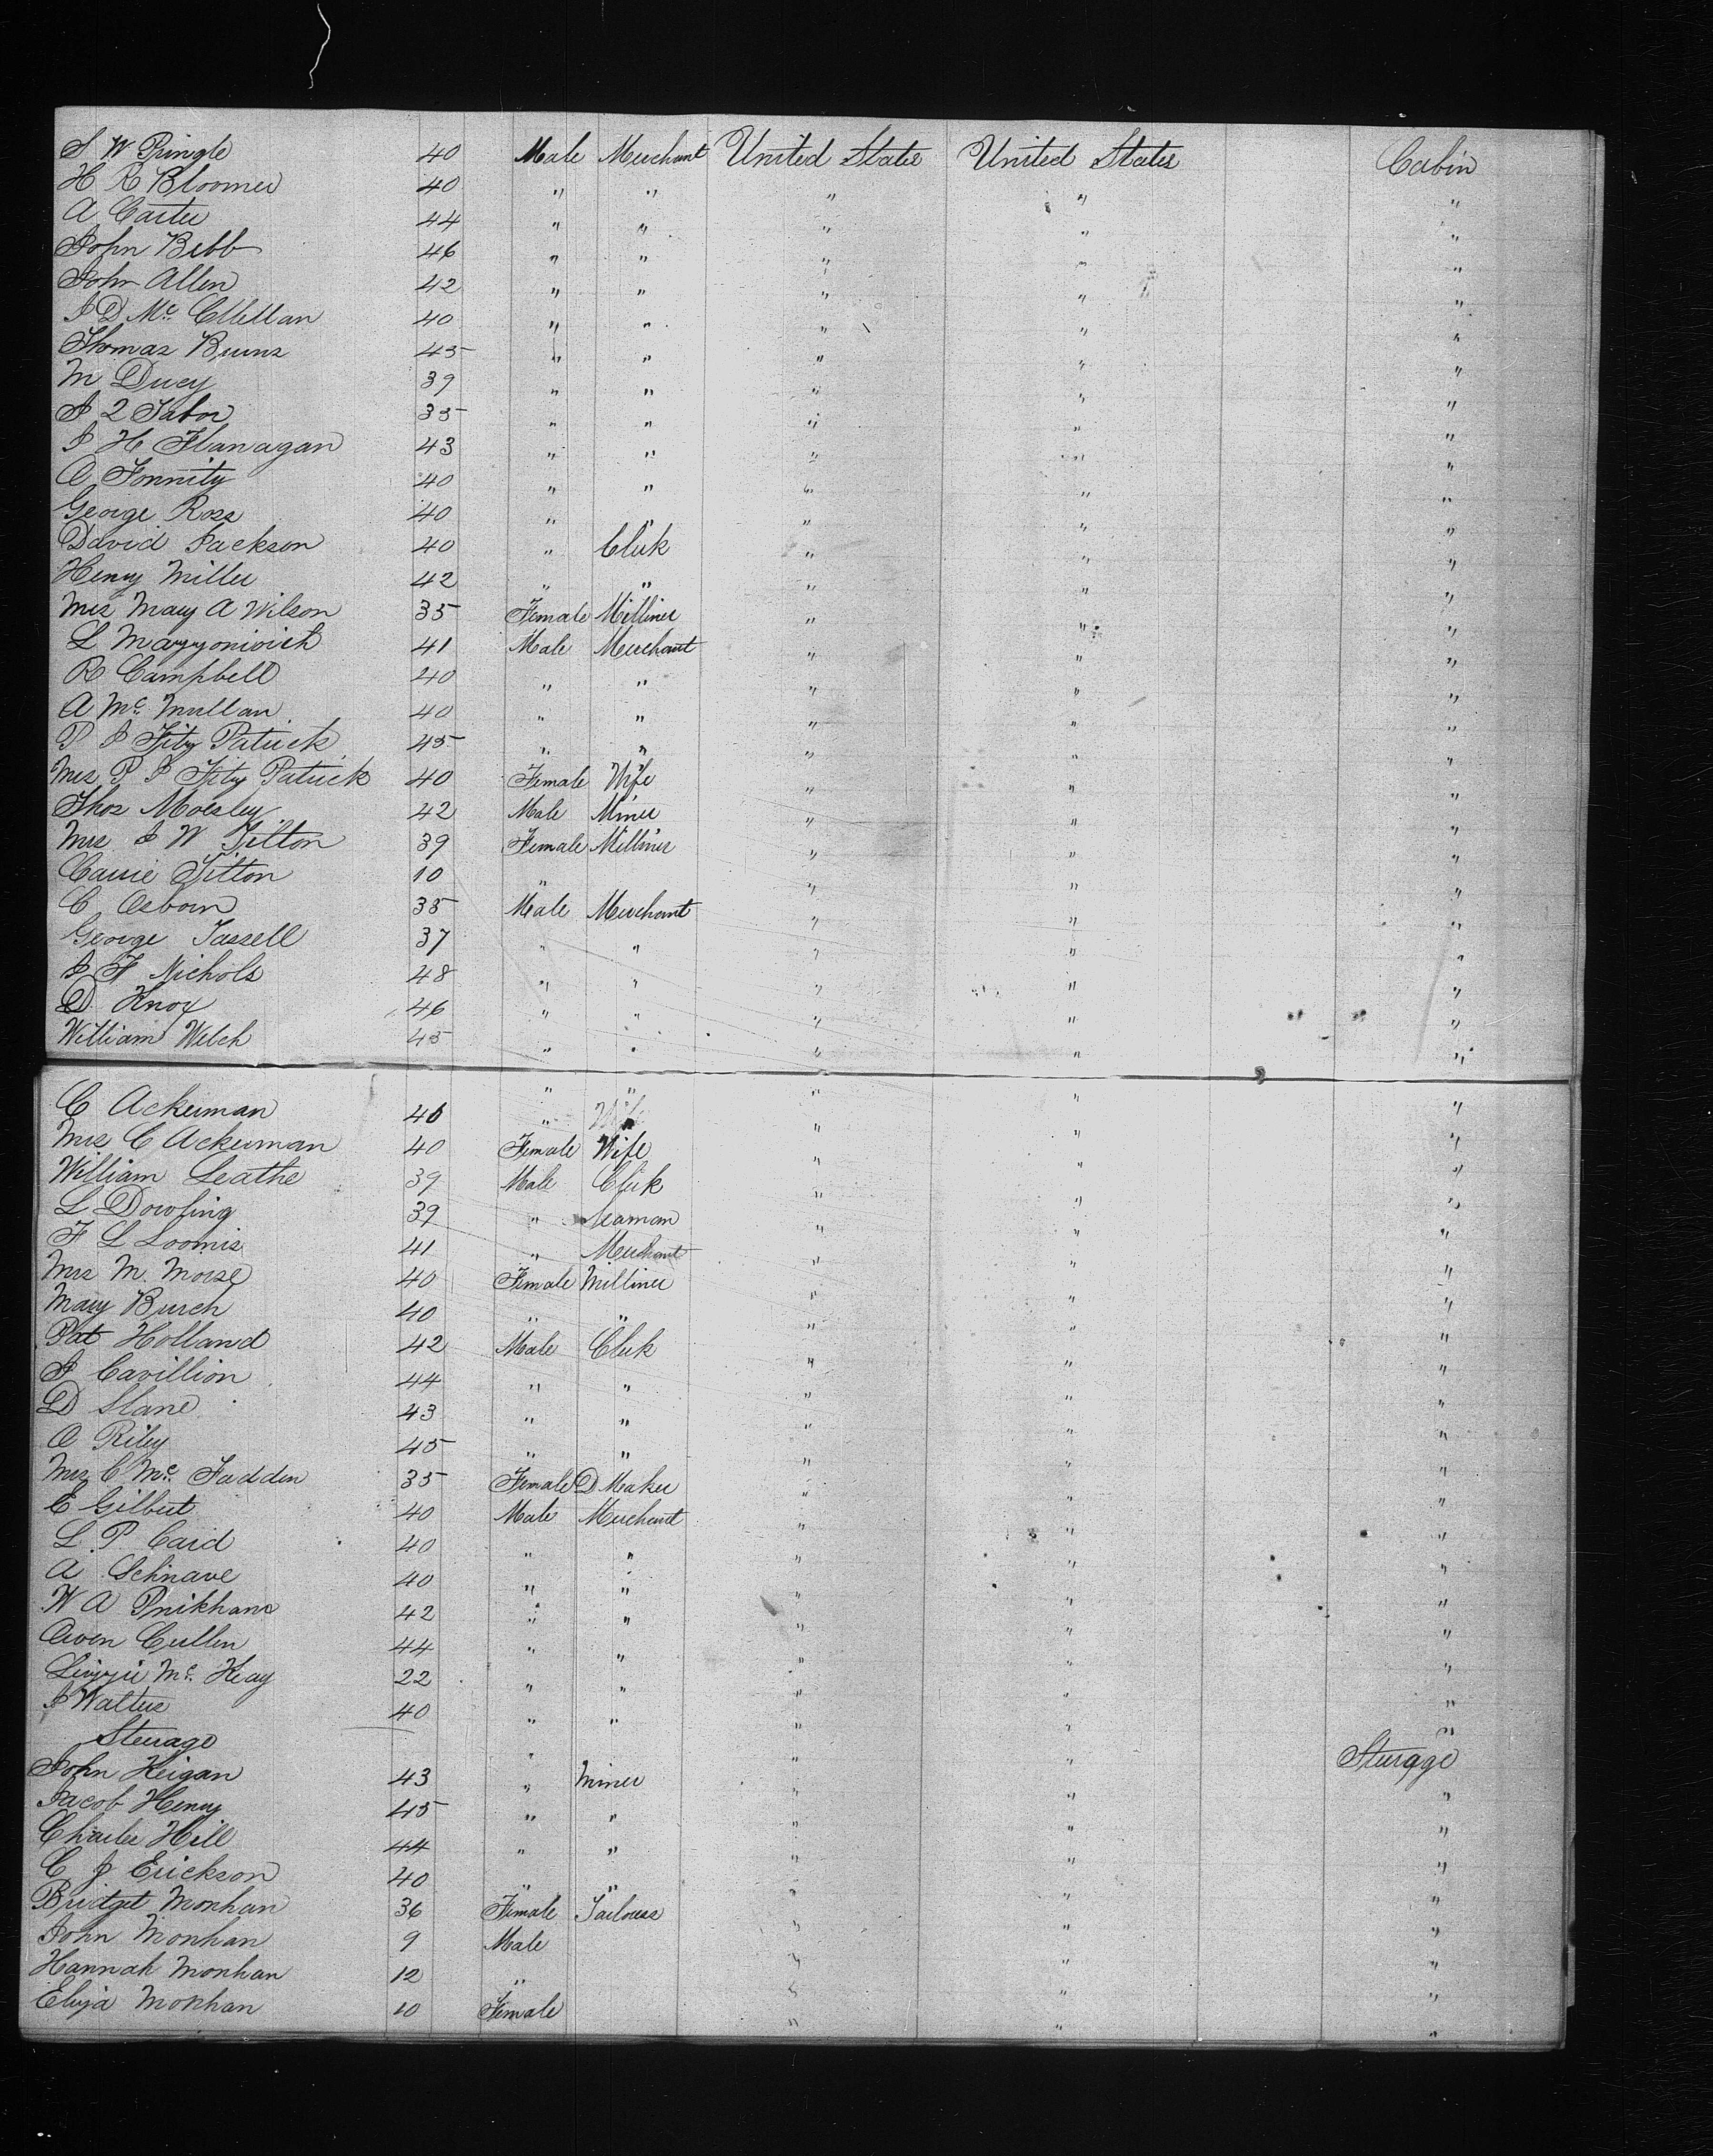 S W Pringle 40 Male Merchant United States United States Cabin
H R Bloomer 40 " " " " "
A Carter 44 " " " " "
John Bebb 46 " " " " "
John Allen 42 " " " " "
J D Mc Clellan 40 " " " " "
Thomas Burns 45 " " " " "
M Ducy 39 " " " " "
J Q Tabor 35 " " " " "
J H Flanagan 43 " " " " "
O Fonnity 40 " " " " "
George Ross 40 " " " " "
David Jackson 40 " Clerk " " "
Henry Miller 42 " " " " "
Mrs Mary A Wilson 35 Female Milliner " " "
L Mazzonivich 41 Male Merchant " " "
R Campbell 40 " " " " "
A Mc Mullan 40 " " " " "
P J Fitz Patrick 45 " " " " "
Mrs P J Fitz Patrick 40 Female Wife " " "
Thos Moesley 42 Male Miner " " "
Mrs J W Tilton 39 Female Milliner " " "
Carrie Tilton 10 " " " "
C Osborn 35 Male Merchant " " "
George Tassell 37 " " " " "
J F Nichols 48 " " " " "
D Knox 46 " " " " "
William Welch 45 " " " " "
C Ackerman 46 " " " " "
Mrs C Ackerman 40 Female Wife " " "
William Leathe 39 Male Clerk " " "
L Dowling 39 " Seaman " " "
F L Loomis 41 " Merchant " " "
Mrs M. Morse 40 Female Milliner " " "
Mary Burch 40 " " " " "
Pat Holland 42 Male Clerk " " "
J Cavillion 44 " " " " "
D Slane 43 " " " " "
O Riley 45 " " " " "
Mrs C Mc Fadden 35 Female D Maker " " "
E Gilbert 40 Male Merchant " " "
L. P. Caird 40 " " " " "
A Schnave 40 " " " " "
W A Pnikham 42 " " " " "
Owen Cullen 44 " " " " "
Lizzie Mc Keay 22 " " " " "
J Walters 40 " " " " "
Sterrage " " " Sturage
John Keigan 43 " Miner " " "
Jacob Henry 45 " " " " "
Charles Hill 44 " " " " "
C J Erickson 40 " " " " "
Bridget Monhan 36 Female Tailoress " " "
John Monhan 9 Male " " "
Hannah Monhan 12 " " " "
Eliza Monhan 10 Female " " "